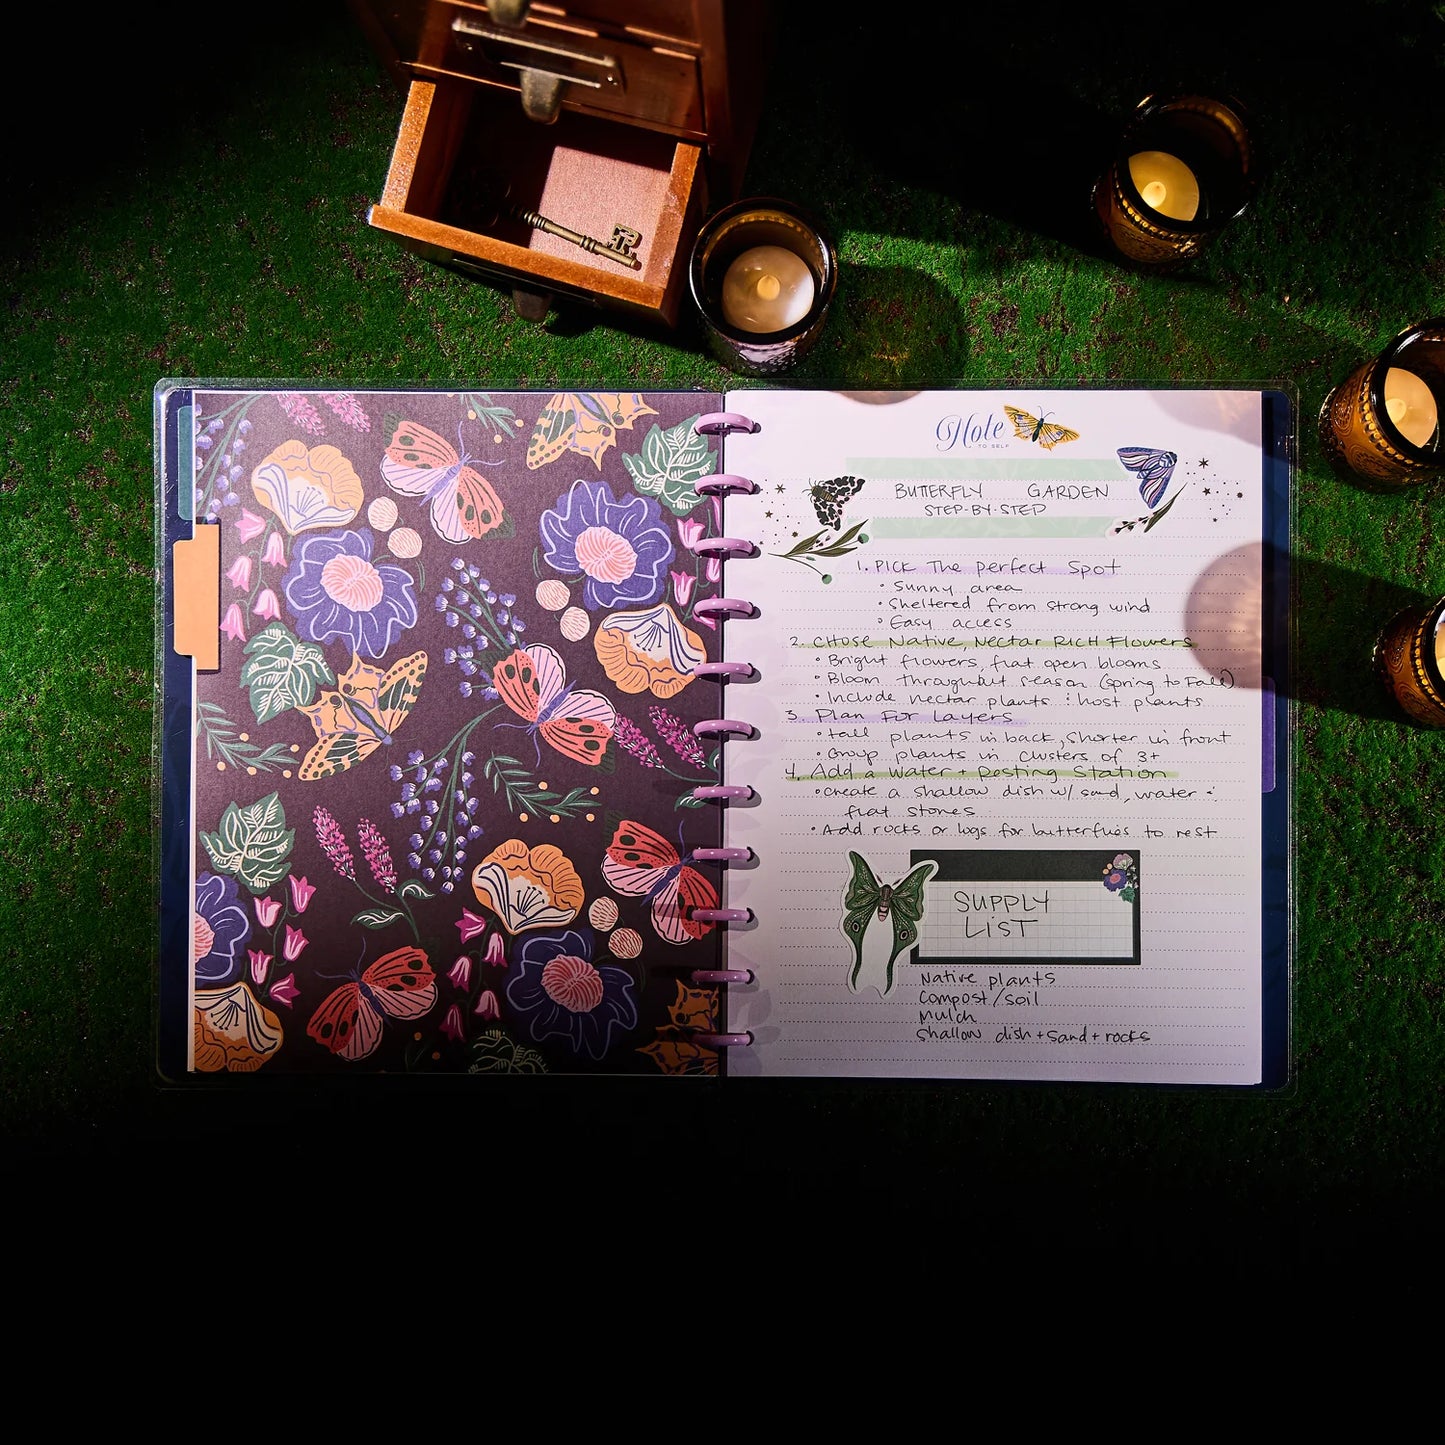 Note
TO SELF
BUTTERFLY GARDEN
STEP-BY-STEP
1. PICK The perfect Spot
• Sunny area
• Sheltered from strong wind
• Easy access
2. CHOSE Native, Nectar RICH Flowers
• Bright flowers, flat open blooms
• Bloom throughout season (spring to Fall)
• Include nectar plants & host plants
3. Plan For Layers
• tall plants in back, shorter in front
• Group plants in clusters of 3+
4. Add a Water + Resting Station
• Create a shallow dish w/ sand, water &
flat stones
• Add rocks or logs for butterflies to rest
SUPPLY
LIST
Native plants
Compost/soil
Mulch
Shallow dish + sand + rocks